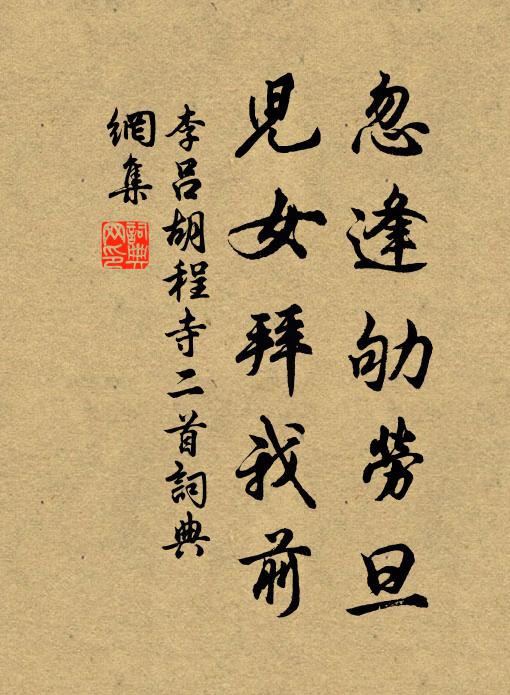 忽逢劬勞旦
兒女拜我前
李呂胡程寺二首詞典
網集
詞典
网印